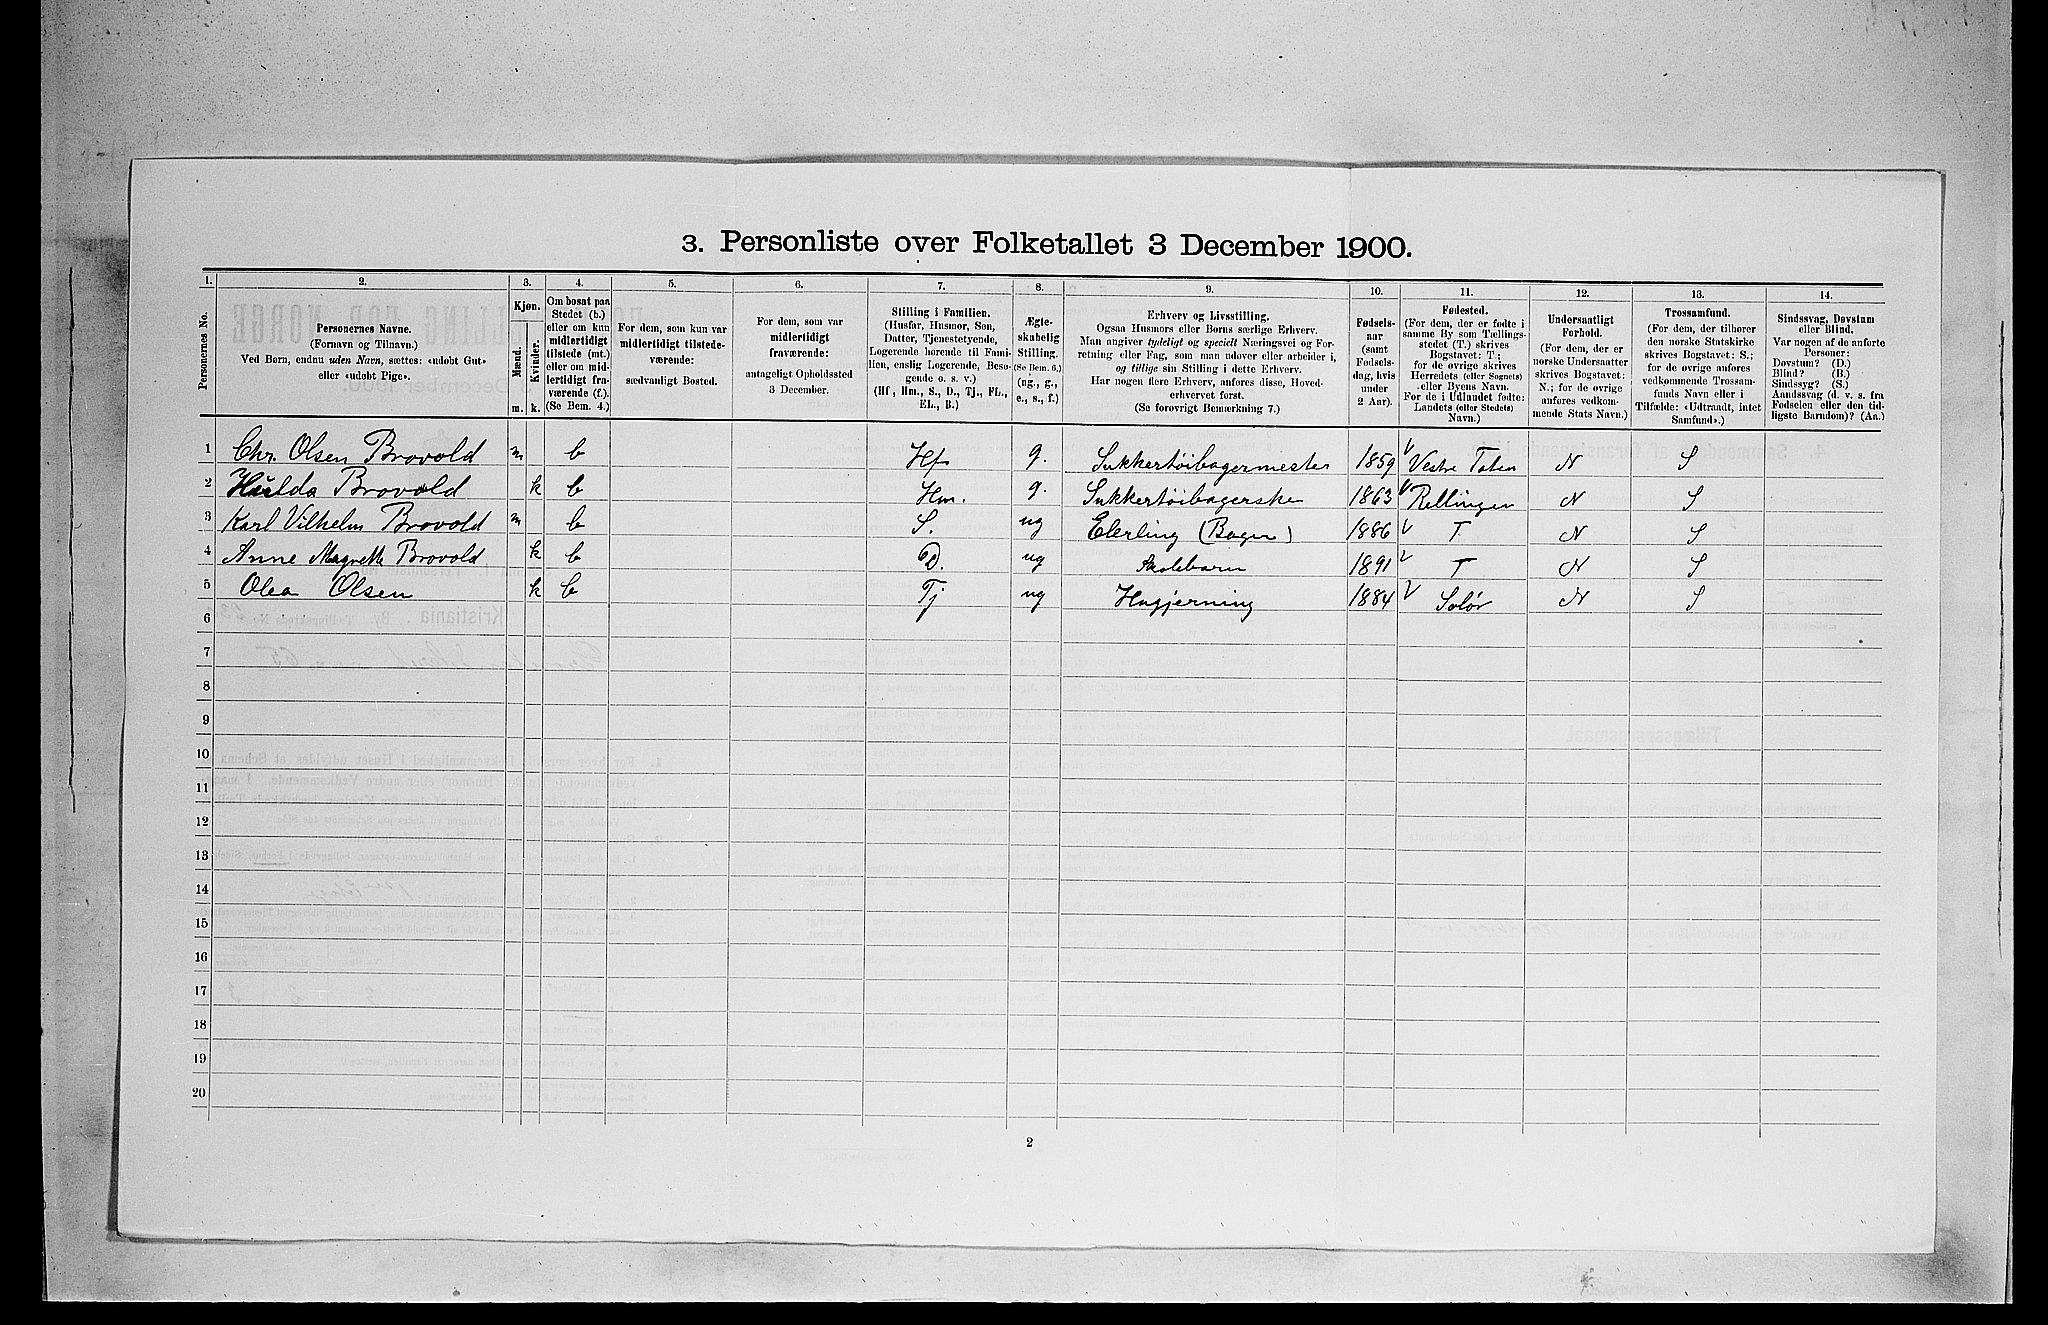 3. Personliste over Folketallet 3 December 1900.
1. 2. 3. 4. 5. 6. 7. 8. 9. 10. 11. 12. 13. 14.
Personernes No.
Personernes Navne.
(Fornavn og Tilnavn.)
Ved Børn, endnu uden Navn, sættes: «udøbt Gut»
eller «udøbt Pige».
Kjøn.
Mænd.
Kvinder.
m. k.
Om bosat paa
Stedet (b.)
eller om kun
midlertidigt
tilstede (mt.)
eller om mid-
lertidigt fra-
værende (f.).
(Se Bem. 4.)
For dem, som kun var
midlertidigt tilstede-
værende:
sædvanligt Bosted.
For dem, som var
midlertidigt
fraværende:
antageligt Opholdssted
3 December.
Stilling i Familien.
(Husfar, Husmor, Søn,
Datter, Tjenestetyende,
Logerende hørende til Fami-
lien, enslig Logerende, Besø-
gende o. s. v.)
(Hf., Hm., S., D., Tj., FL.,
EL., B.)
Ægte-
skabelig
Stilling.
(Se Bem. 6.)
(ug., g.,
e., s., f.)
Erhverv og Livsstilling.
Ogsaa Husmors eller Børns særlige Erhverv.
Man angiver tydeligt og specielt Næringsvei og For-
retning eller Fag, som man udøver eller arbeider i,
og tillige sin Stilling i dette Erhverv.
Har nogen flere Erhverv, anføres disse, Hoved-
erhvervet først.
(Se forøvrigt Bemærkning 7.)
Fødsels-
aar
(samt
Fødsels-
dag, hvis
under
2 Aar).
Fødested.
(For dem, der er fødte i
samme By som Tællings-
stedet (T.) skrives
Bogstavet: T.;
for de øvrige skrives
Herredets (eller Sognets)
eller Byens Navn.
For de i Udlandet fødte:
Landets (eller Stedets)
Navn.)
Undersaatligt
Forhold.
(For dem, der er
norske Undersaatter
skrives Bogstavet:
N.; for de øvrige
anføres vedkom-
mende Stats Navn.)
Trossamfund.
(For dem, der tilhører
den norske Statskirke
skrives Bogstavet: S.;
for de øvrige anføres
vedkommende Trossam-
funds Navn eller i
Tilfælde: «Udtraadt, intet
Samfund».)
Sindssvag, Døvstum
eller Blind.
Var nogen af de anførte
Personer:
Døvstum? (D.)
Blind? (B.)
Sindssyg? (S.)
Aandssvag (d. v. s. fra
Fødselen eller den tid-
ligste Barndom)? (Aa.)
1 Chr. Olsen Brovold m b Hf g. Sukkertøibagermester 1859 Vestre Toten N S
2 Hulda Brovold k b Hm. g. Sukkertøibagerske 1863 Rellingen N S
3 Karl Vilhelm Brovold m b S. ug (Bager) 1886 T N S
4 Anne Magrette Brovold k b D. ug Skolebarn 1891 T N S
5 Olea Olsen k b Tj ug Husgjerning 1884 Solør N S
6
7
8
9
10
11
12
13
14
15
16
17
18
19
20
2